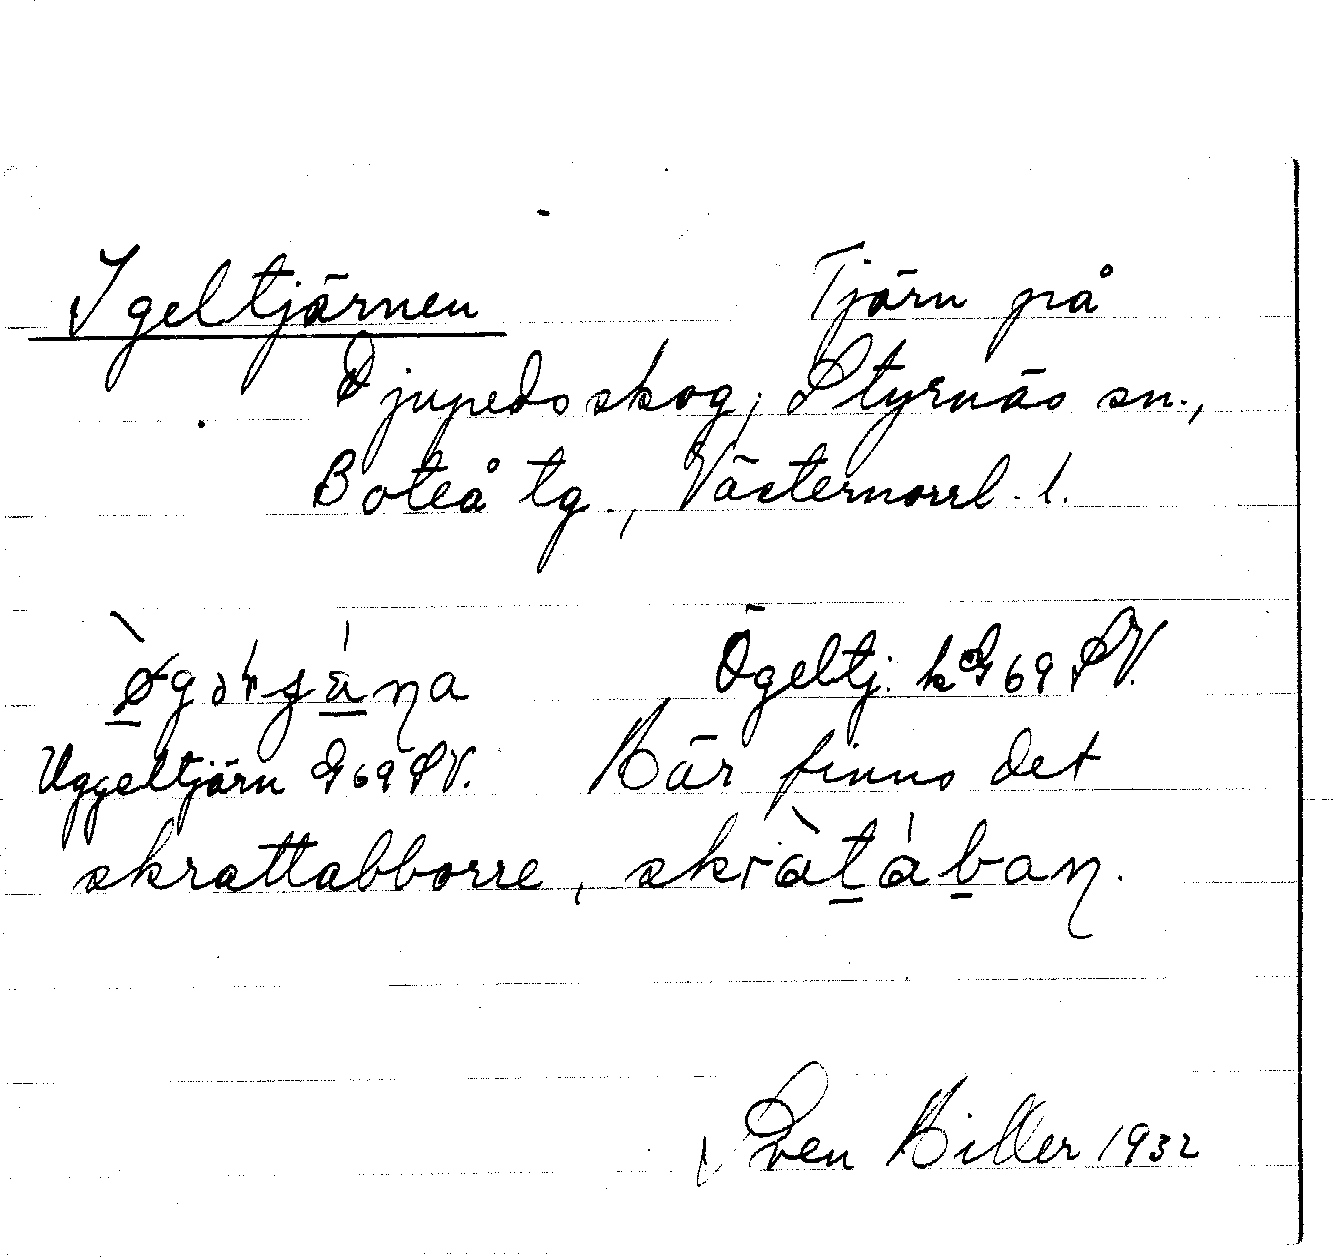 Igeltjärnen Tjärn på
Djupedsskog, Styrnäs sn.,
Boteå tg., Västernorrl. l.
Ögeltj. k G 69 SV.
Uggeltjärn G 69 SV. Här finns det
skrattabborre, skràtában.
Sven Hiller 1932